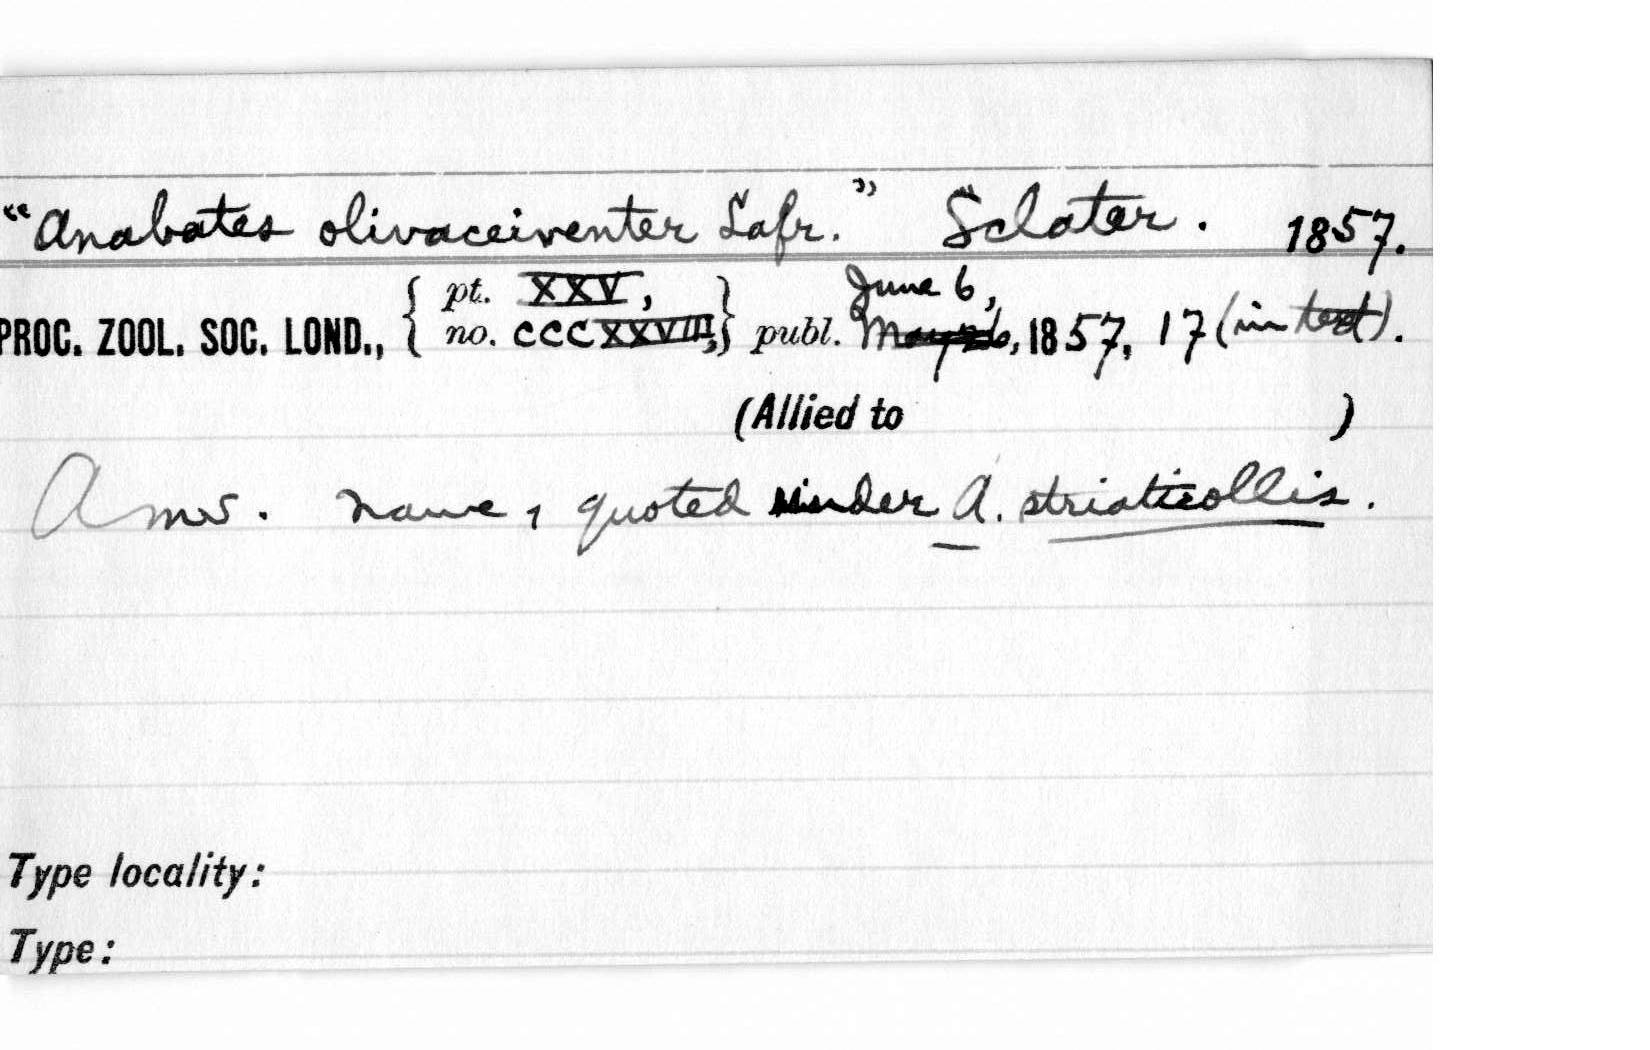 "Anabates olivaceiventer Lafr." Sclater. 1857.
pt. XXV, June 6,
PROC. ZOOL. SOC. LOND., no. CCCXXVIII, publ. May 26, 1857, 17 (in text).
(Allied to )
A ms. name, quoted under A. striaticollis.
Type locality:
Type: